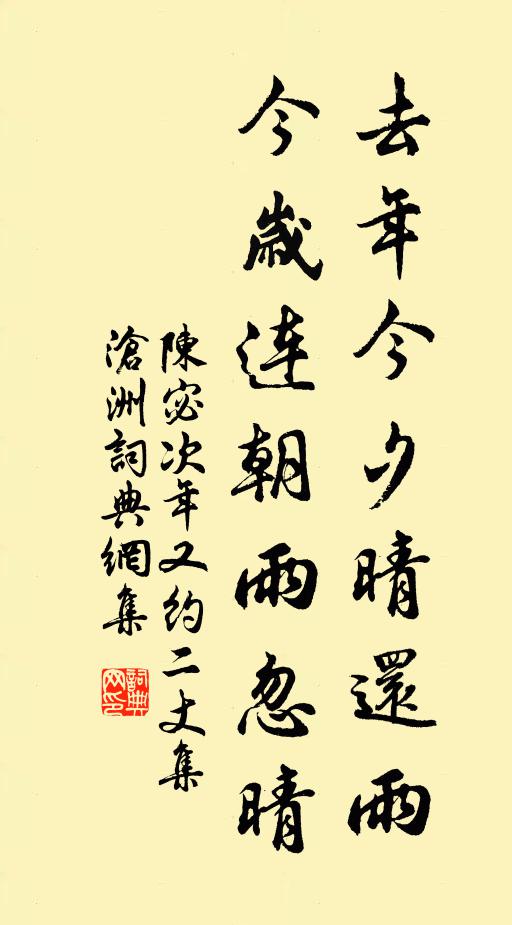 去年今夕晴還雨
今歲連朝雨忽晴
陳宓次年又約二丈集
滄洲詞典網集
詞典网印